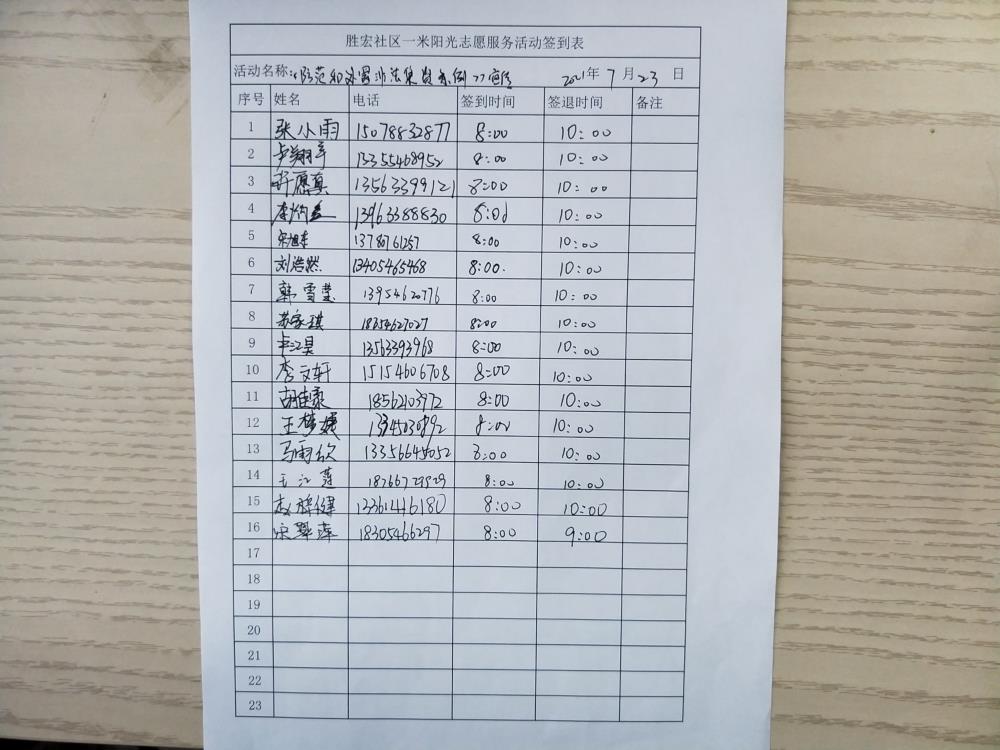 胜宏社区一米阳光志愿服务活动签到表
活动名称:《防范和处置非法集资条例》宣传 2021年 7月23日
序号 姓名 电话 签到时间 签退时间 备注
1 张小雨 15078832877 8:00 10:00
2 13355468952 8:00 10:00
3 许愿真 13563399121 8:00 10:00
4 13963388830 8:00 10:00
5 8:00 10:00
6 刘浩然 13405465468 8:00. 10:00
7 韩雪莹 13954620776 8:00 10:00
8 苏家琪 18354627027 8:00 10:00
9 13563393968 8:00 10:00
10 李文轩 15154606708 8:00 10:00
11 胡佳豪 18562103972 8:00 10:00
12 王梦媛 8:00 10:00
13 马雨欣 13356645052 8:00 10:00
14 王江莲 8:00 10:00
15 13361446180 8:00 10:00
16 宋翠萍 18305466297 8:00 9:00
17
18
19
20
21
22
23